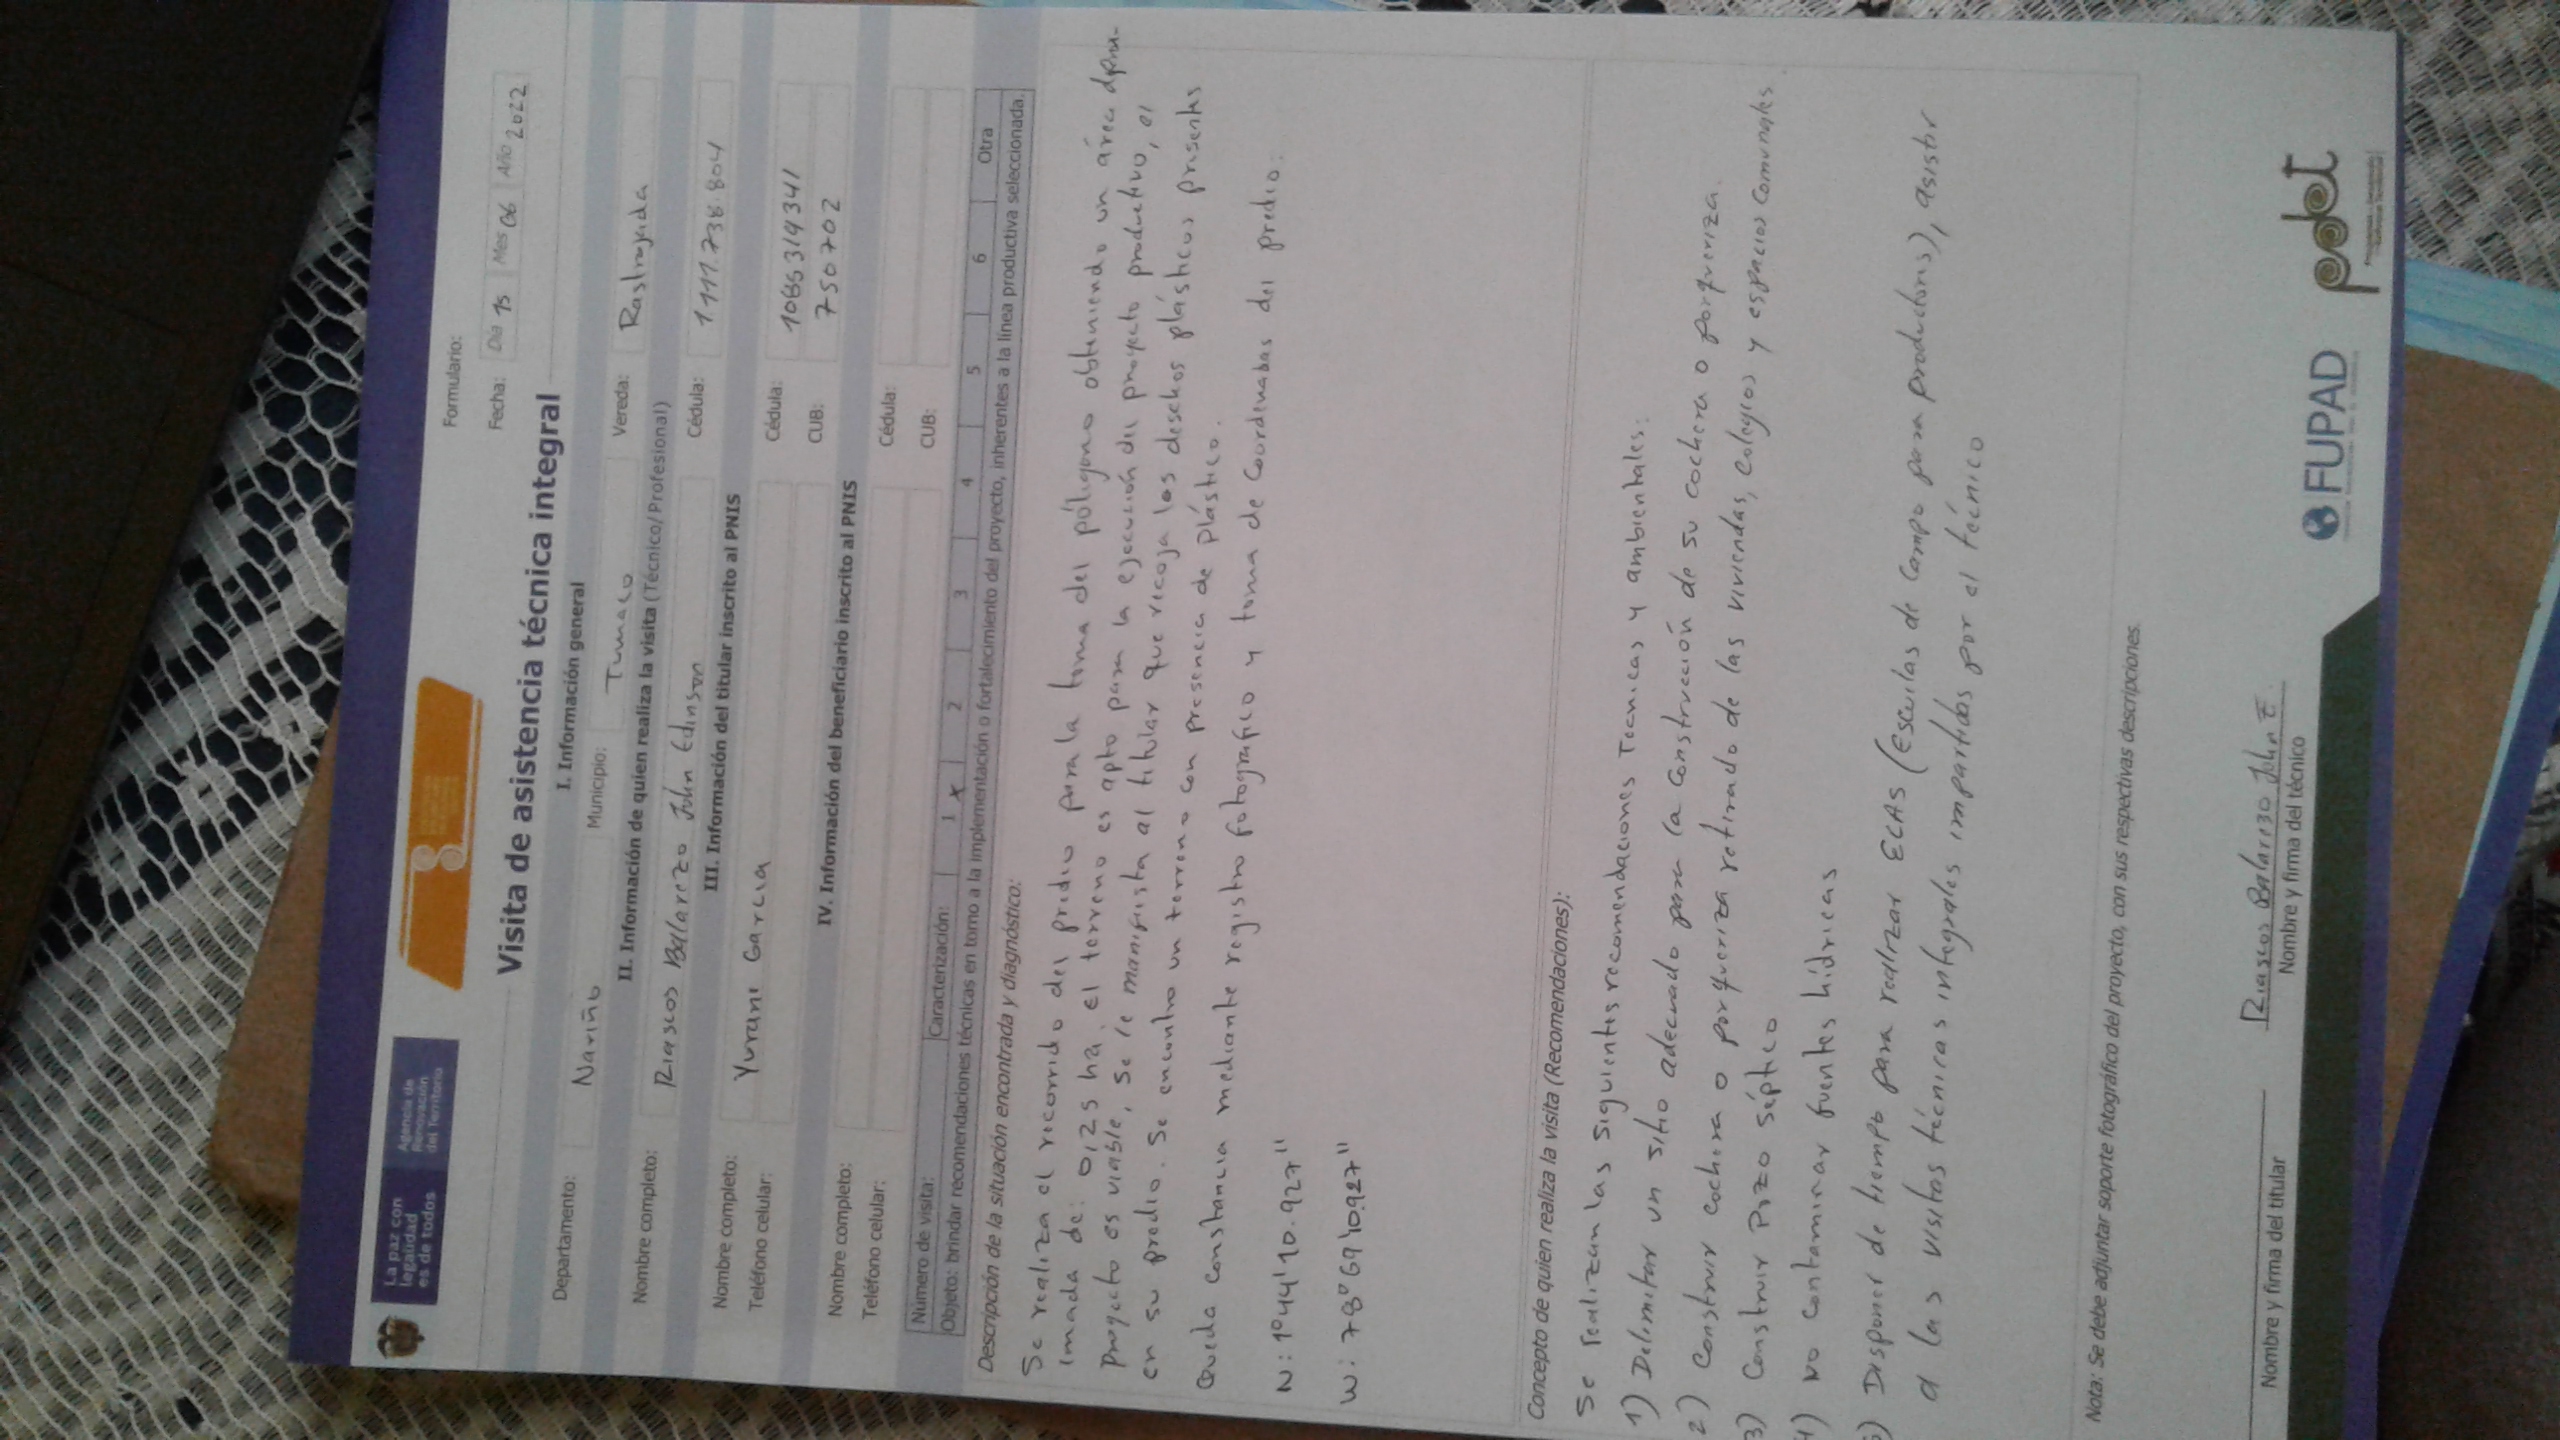 La paz con
legalidad
es de todos
Agencia de
Renovación
del Territorio
Formulario:
Fecha: Día 15 Mes 06 Año 2022
Visita de asistencia técnica integral
I. Información general
Departamento: Nariño Municipio: Tumaco Vereda: Rastrojada
II. Información de quien realiza la visita (Técnico/Profesional)
Nombre completo: Riascos Balarezo John Edinson Cédula: 1111.738.804
III. Información del titular inscrito al PNIS
Nombre completo: Yurani Garcia Cédula: 1085319341
Teléfono celular: CUB: 750702
IV. Información del beneficiario inscrito al PNIS
Nombre completo: Cédula:
Teléfono celular: CUB:
Número de visita: Caracterización: 1 x 2 3 4 5 6 Otra
Objeto: brindar recomendaciones técnicas en torno a la implementación o fortalecimiento del proyecto, inherentes a la línea productiva seleccionada.
Descripción de la situación encontrada y diagnóstico:
Se realiza el recorrido del predio para la toma del póligono obteniendo un área aprox-
imada de: 0,25 ha. el terreno es apto para la ejecución del proyecto productivo, el
proyecto es viable, se le manifiesta al titular que recoja los desechos plásticos presentes
en su predio. Se encontro un terreno con presencia de plástico.
Queda constancia mediante registro fotografico y toma de Coordenadas del predio:
N: 1°44'10.927"
W: 78°69'10.927"
Concepto de quien realiza la visita (Recomendaciones):
Se realizan las siguientes recomendaciones Tecnicas y ambientales:
1) Delimitar un sitio adecuado para la construcción de su cochera o porqueriza.
2) Construir cochera o porqueriza retirado de las viviendas, colegios y espacios comunales
3) Construir Pozo séptico
4) No contaminar fuentes hídricas
5) Disponer de tiempo para realizar ECAS (Escuelas de Campo para productores), asistir
a las visitas técnicas integrales impartidas por el técnico
Nota: Se debe adjuntar soporte fotográfico del proyecto, con sus respectivas descripciones.
Riascos Balarezo John E.
Nombre y firma del titular Nombre y firma del técnico
FUPAD
pdet